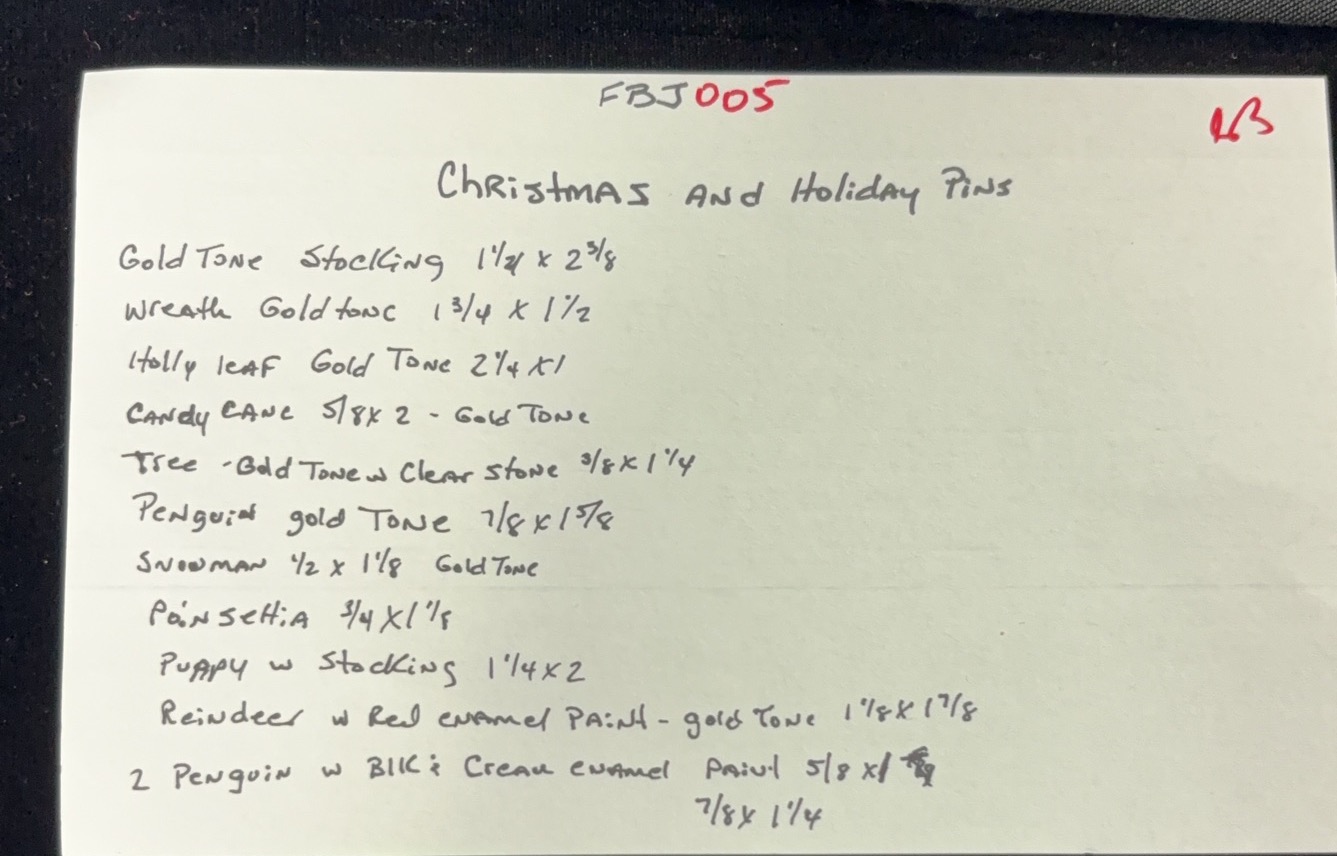 FBJ005
LB
Christmas and Holiday Pins
Gold Tone Stocking 1 1/2 x 2 3/8
Wreath Goldtone 1 3/4 x 1 1/2
Holly leaf Gold Tone 2 1/4 x 1
Candy Cane 5/8 x 2 - Gold Tone
Tree - Gold Tone w Clear Stone 3/8 x 1 1/4
Penguin gold Tone 7/8 x 1 5/8
Snowman 1/2 x 1 1/8 Gold Tone
Poinsettia 3/4 x 1 1/8
Puppy w Stocking 1 1/4 x 2
Reindeer w Red enamel Paint - gold Tone 1 1/8 x 1 7/8
2 Penguin w Blk & Cream enamel Paint 5/8 x 1
7/8 x 1 1/4